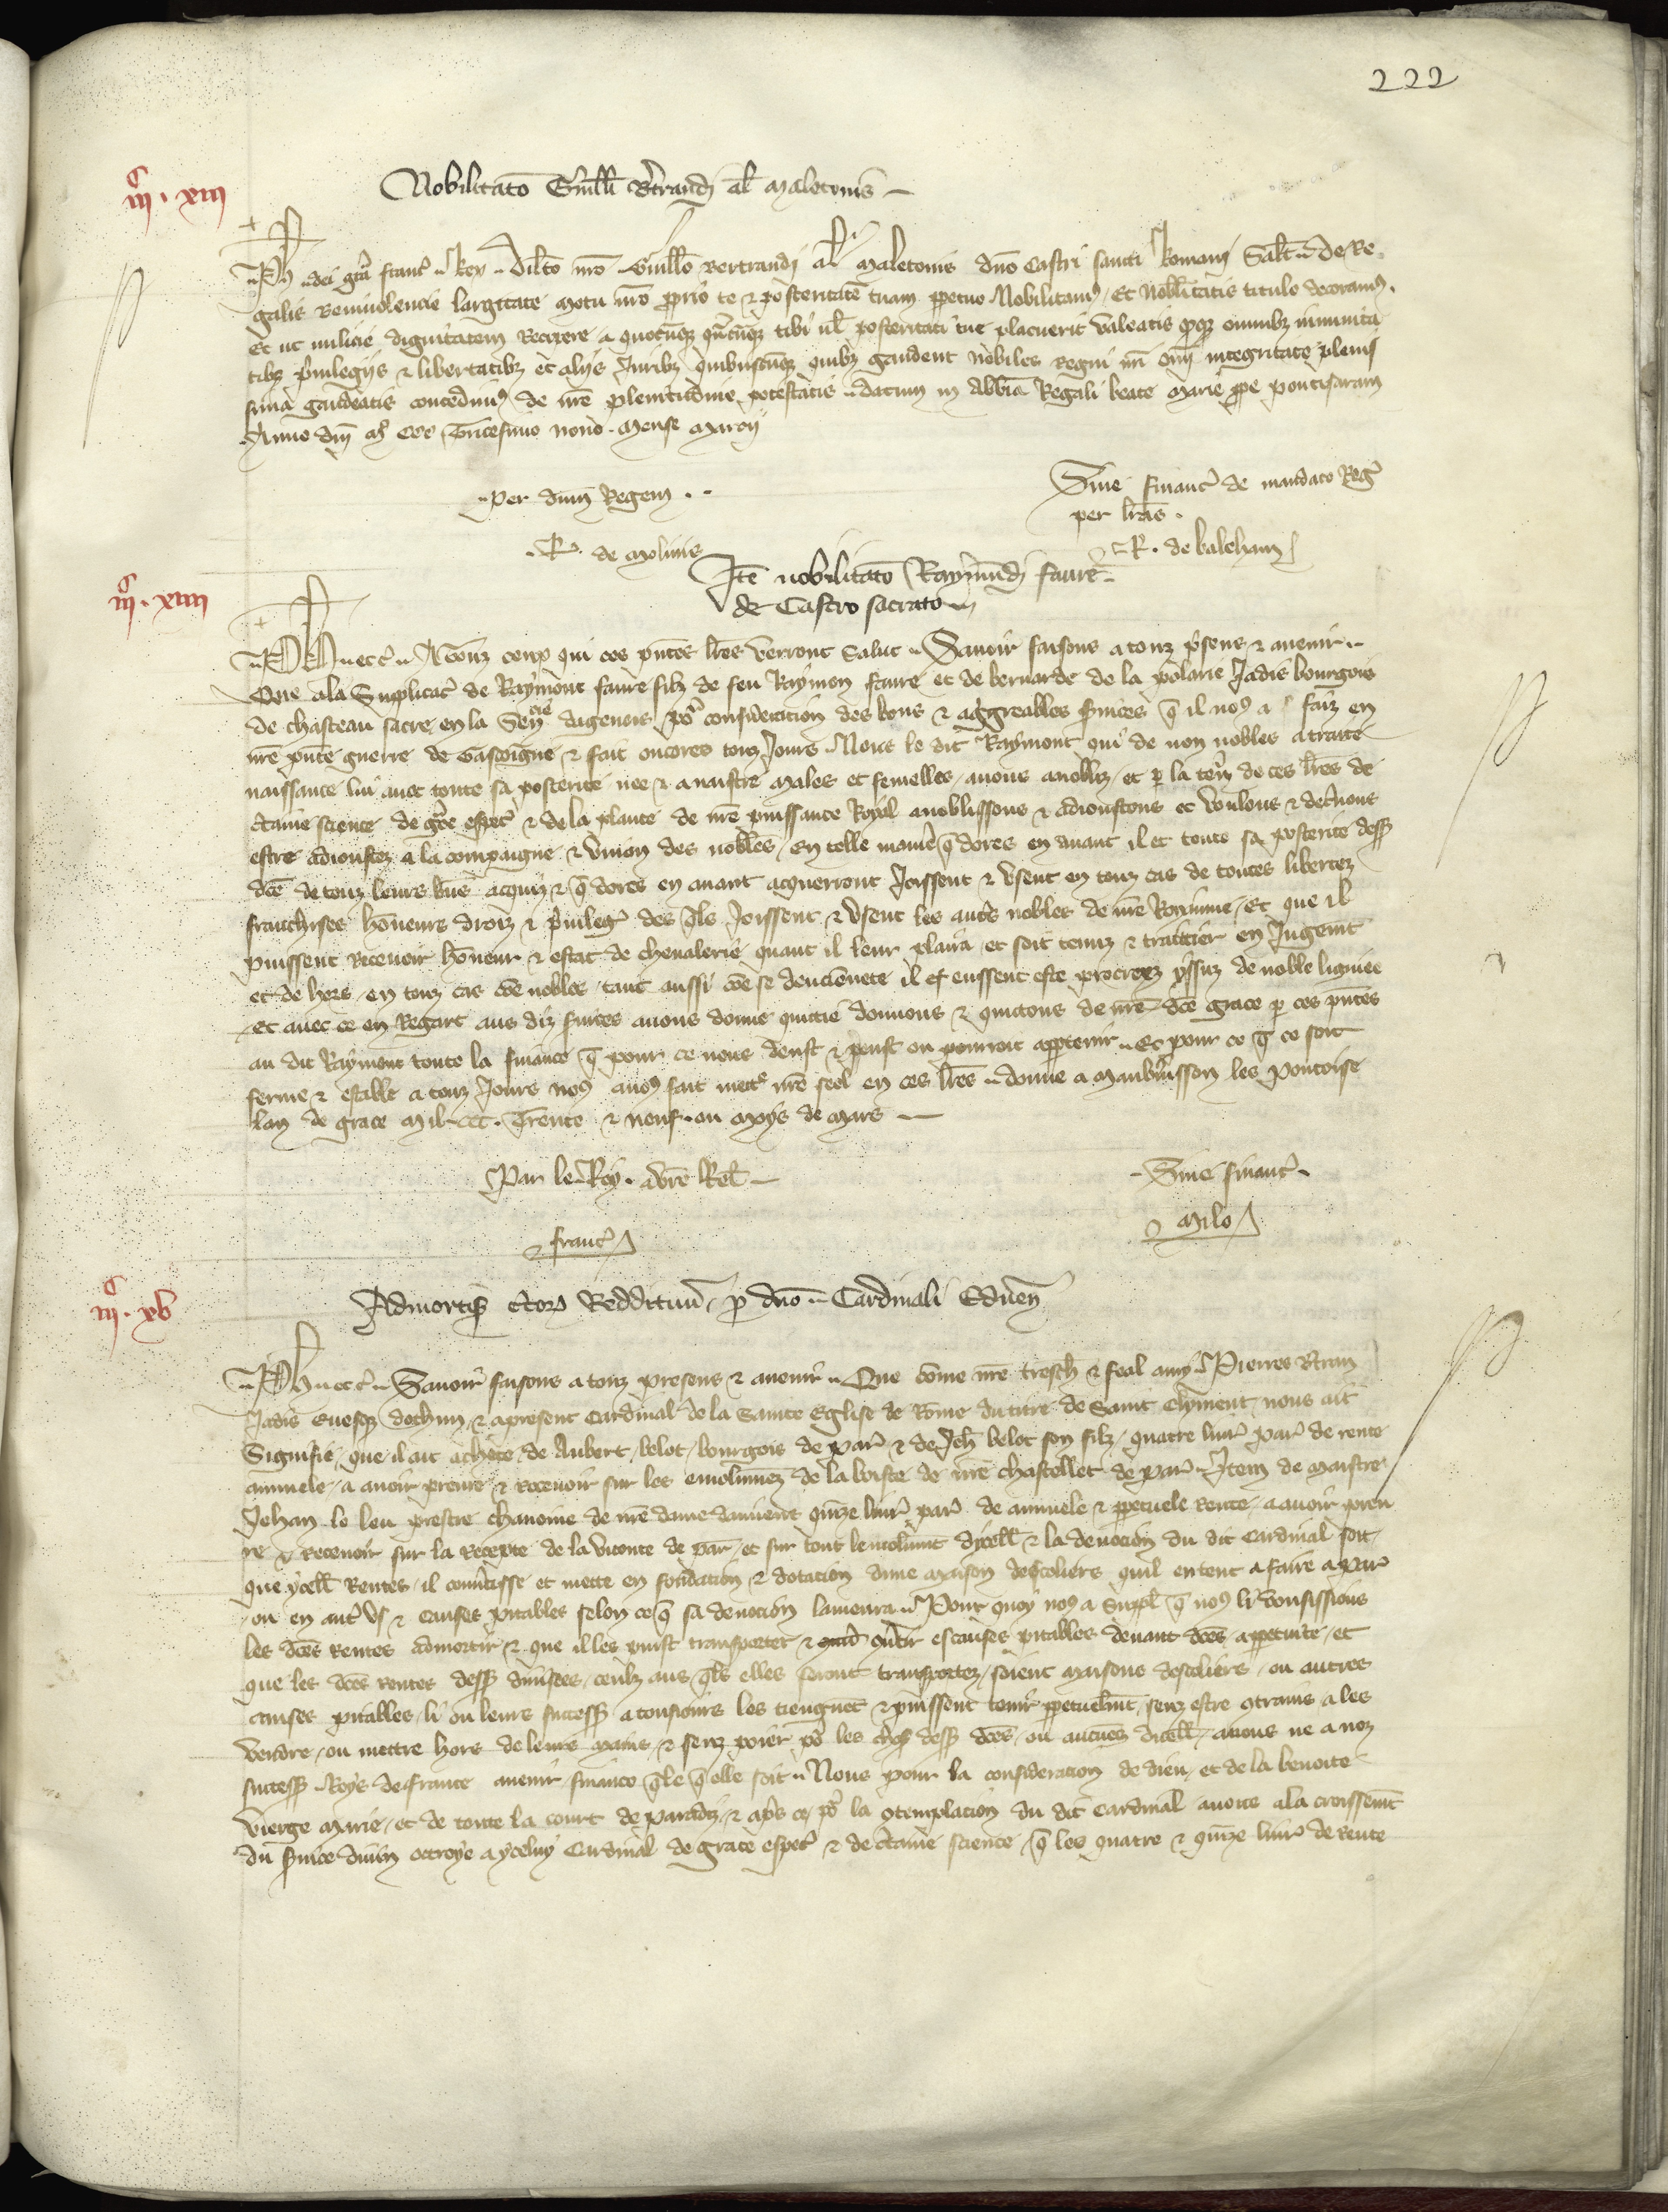 222
Nobilitatō Guill̄i Bertrandi al̄ Maletonis
iijc xiij
Ph dei gr̄a franc̄ Rex Dil̄cto nr̄o Guill̄o Bertrandi al̄ Maletonis dn̄o Castri sancti Romani Sal̄t de Re
galis Beniuolencie largitate motu nr̄o pprio te & posteritatē tuam ppetuo Nobilitamꝰ Et nobl̄itatis titulo decoramꝰ
Et ut milicie dignitatem Recipere a quocūqꝫ tibi ul̄ posteritati tue placuerit valeatis omnibꝫ inmunita
tibꝫ priuilegijs & libertatibꝫ et alijs Juribꝫ quibuscūqꝫ quibꝫ gaudent nobiles Regni nr̄i integritate plenis
sima gaudeatis concedimꝰ de nr̄e plenitudine potestatis datum in Abbīa Regali beate Marie ppe pontisaram
Anno dn̄i mo CCC Tricesimo nono mense Marcij
per dn̄m Regem
Sine financ̄ de mandato Reḡ
per lr̄as
R. de Molinis
R. de baleham
Itē nobilitatō Raymūdi faure
de Castro sacrato
iijc xiiij
Ph etc̄ A Touz ceux qui ces pn̄tes lr̄es verront Salut Sauoir faisons a touz psens & auenir
Que ala Supplicac̄ de Raymont faure filz de feu Raymon faure et de bernarde de la polarie Jadis bourgois
de chasteau sacre en la Sen̄cie dagenois poʳ consideracion des bons & aggreables suices q̄ il noꝰ a faiz en
nr̄e pn̄te guerre de Gascoigne & fait oncores touz Jours Nous le dit Raymont qui de non nobles a traite
naissance lui auec toute sa posterite nee & a naistre males et femelles auons anobliz et p la ten̄ de ces lr̄es de
c̄taine science de gr̄ce espec̄ & de la plante de nr̄e puissance Royal anoblissons & adioustons et voulons & dec̄nons
estre adioustez a la compaignie & vnion des nobles En telle manie q̄ dores en auant il et toute sa posterite dess̄
dc̄e de touz leurs bn̄s acquiz & q̄ dores en auant acquerront Joissent & vsent en touz cas de toutes libertez
franchises hōneurs droiz & priuileḡ des q̄ls Joissent & vsent les autr̄s nobles de nr̄e Royaume Et que il
puissent Receuoir hōneur & estat de cheualerie quant il leur plaira et soit tenuz & traittier en Jugem̄t
et de hors en touz cas cōe nobles tant aussi cōe se danciennete il eussent este procreez yssuz de noble ligniee
Et auec ce en Regart aus diz suices auons donne quittie donnons & quittons de nr̄e dc̄e grace p ces pn̄tes
au dit Raymont toute la finance q̄ pour ce nous deust & peust ou pourroit apptenir Et pour ce q̄ ce soit
ferme & estable a touz Jours noꝰ auoꝰ fait mettr̄ nr̄e seel en ces lr̄es donne a Maubuisson les Pontoise
Lan de grace Mil CCC Trente & neuf ou Moys de Mars
Par le Roy a vr̄e Rel̄
Sine financ̄
franc̄
Milo
Admortiz̄ c̄toꝝ Reddituū p dn̄o Cardinali Eduen̄
iijc xv
Ph etc̄ Sauoir faisons a touz presens & auenir Que cōme nr̄e tresch̄ & feal amy Pierres B̄tran
Jadis euesqꝫ dostun & apresent Cardinal de la Sainte Eglise de Rōme du titre de Saint Clyment nous ait
Signifie que il ait achete de Aubert belot bourgois de par̄ & de Jeh̄ belot son filz quatre liur̄ par̄ de rente
annuele a auoir prenre & receuoir sur les emolumēz de la boiste de nr̄e chastellet de par̄ Item de maistre
Jehan le leu prestre chanoine de nr̄e dame damiens quīze liur̄ par̄ de annuele & ppetuele rente a auoir pren
re & receuoir sur la Recepte de la viconte de par̄ et sur tout lemolum̄t dycell̄ & la deuocion du dit Cardinal soit
que ycell̄ Rentes il conūtisse et mette en fondacion & dotacion dune maison descoliers quil entent a faire a par̄
ou en autr̄ vs & causes pitables selon ce q̄ sa deuocion lamenra Pour quoy noꝰ a suppl̄ q̄ noꝰ li vousissions
les dc̄es Rentes admortir & que il les puist transporter & conūtir es causes pitables deuant dc̄es a ppetuite et
que les dc̄es rentes dess̄ diuisees ceulx aus q̄ls elles seront transportez soient maisons descoliers ou autres
causes pitables li ou leurs success̄ a tousiours les tiengnēt & puissent tenir ppetuelm̄t senz estre 9trains a les
vendre ou mettre hors de leurs mains & senz poier poʳ les choses dess̄ dc̄es ou aucunes dicell̄ a nous ne a noz
success̄ Roys de france auenir finance q̄le q̄ elle soit Nous pour la consideracion de dieu et de la benoite
vierge Marie et de toute la court de paradiz & apr̄s ce poʳ la 9templacion du dit Cardinal auons a la croissem̄t
du suice diuin ottroye a yceluy Cardinal de grace espec̄ & de c̄taine science q̄ les quatre & quīze liur̄ de rente